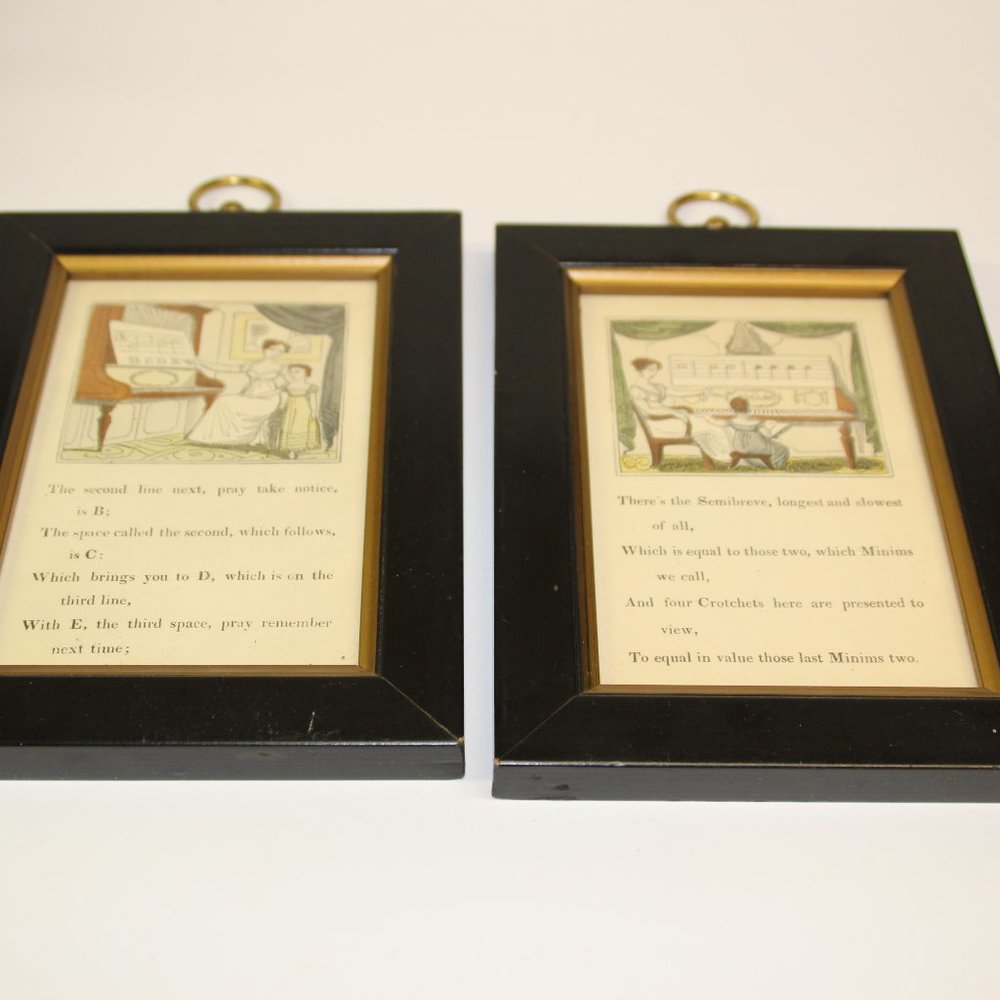 The second line next, pray take notice,
is B;
The space called the second, which follows,
is C:
Which brings you to D, which is on the
third line,
With E, the third space, pray remember
next time;
There's the Semibreve, longest and slowest
of all,
Which is equal to those two, which Minims
we call,
And four Crotchets here are presented to
view,
To equal in value those last Minims two.